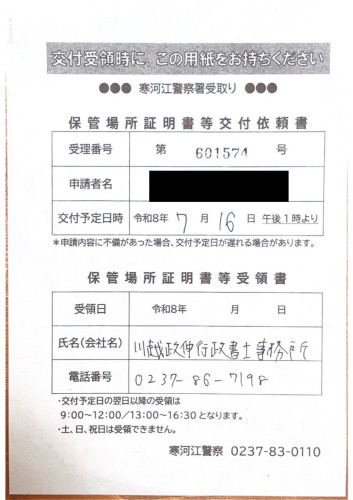 交付受領時に、この用紙をお持ちください
●●● 寒河江警察署受取り ●●●
保管場所証明書等交付依頼書
受理番号 第 601574 号
申請者名
交付予定日時 令和8年 7 月 16 日 午後1時より
*申請内容に不備があった場合、交付予定日が遅れる場合があります。
保管場所証明書等受領書
受領日 令和8年 月 日
氏名(会社名) 川越政伸行政書士事務所
電話番号 0237-86-7198
・交付予定日の翌日以降の受領は
9:00~12:00/13:00~16:30となります。
・土、日、祝日は受領できません。
寒河江警察 0237-83-0110